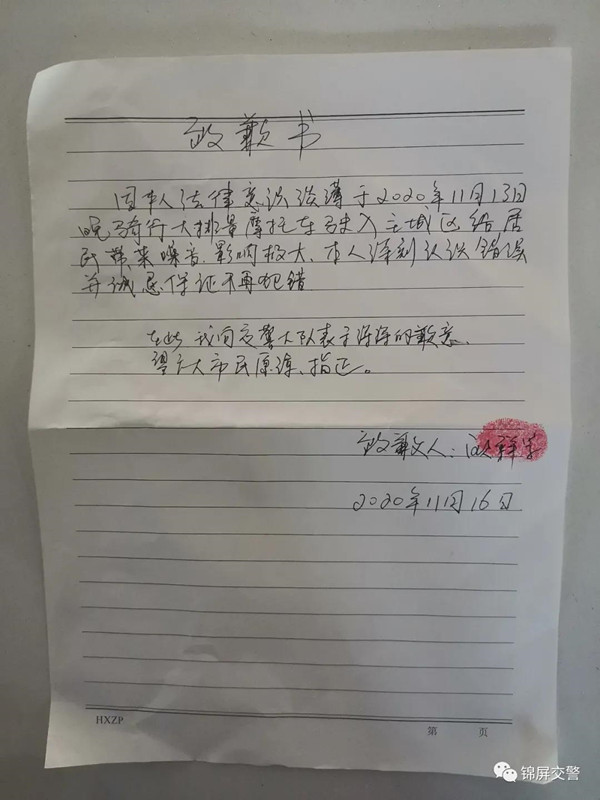 致歉书
因本人法律意识淡薄于2020年11月13日
晚骑行大排量摩托车驶入主城区给居
民带来噪音.影响极大、本人深刻认识错误
并诚恳保证不再犯错
在此 我向交警大队表示深深的歉意、
望广大市民原谅、指正。
致歉人:
2020年11月16日
HXZP
第 页
锦屏交警